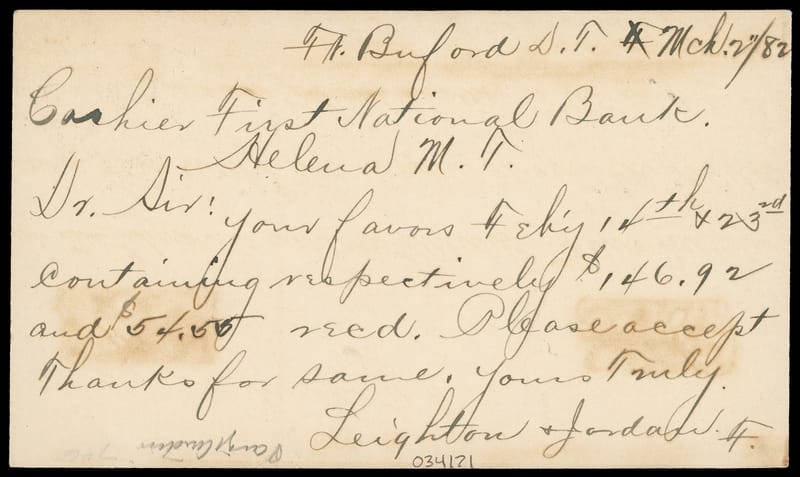 Ft. Buford D.T. Mch. 2"/82
Cashier First National Bank.
Helena M.T.
Dr. Sir! Your favors Feb'y 14th & 23rd
containing respectively $146.92
and $54.55 recd. Please accept
Thanks for same. Yours Truly.
Leighton & Jordan. F.
034121